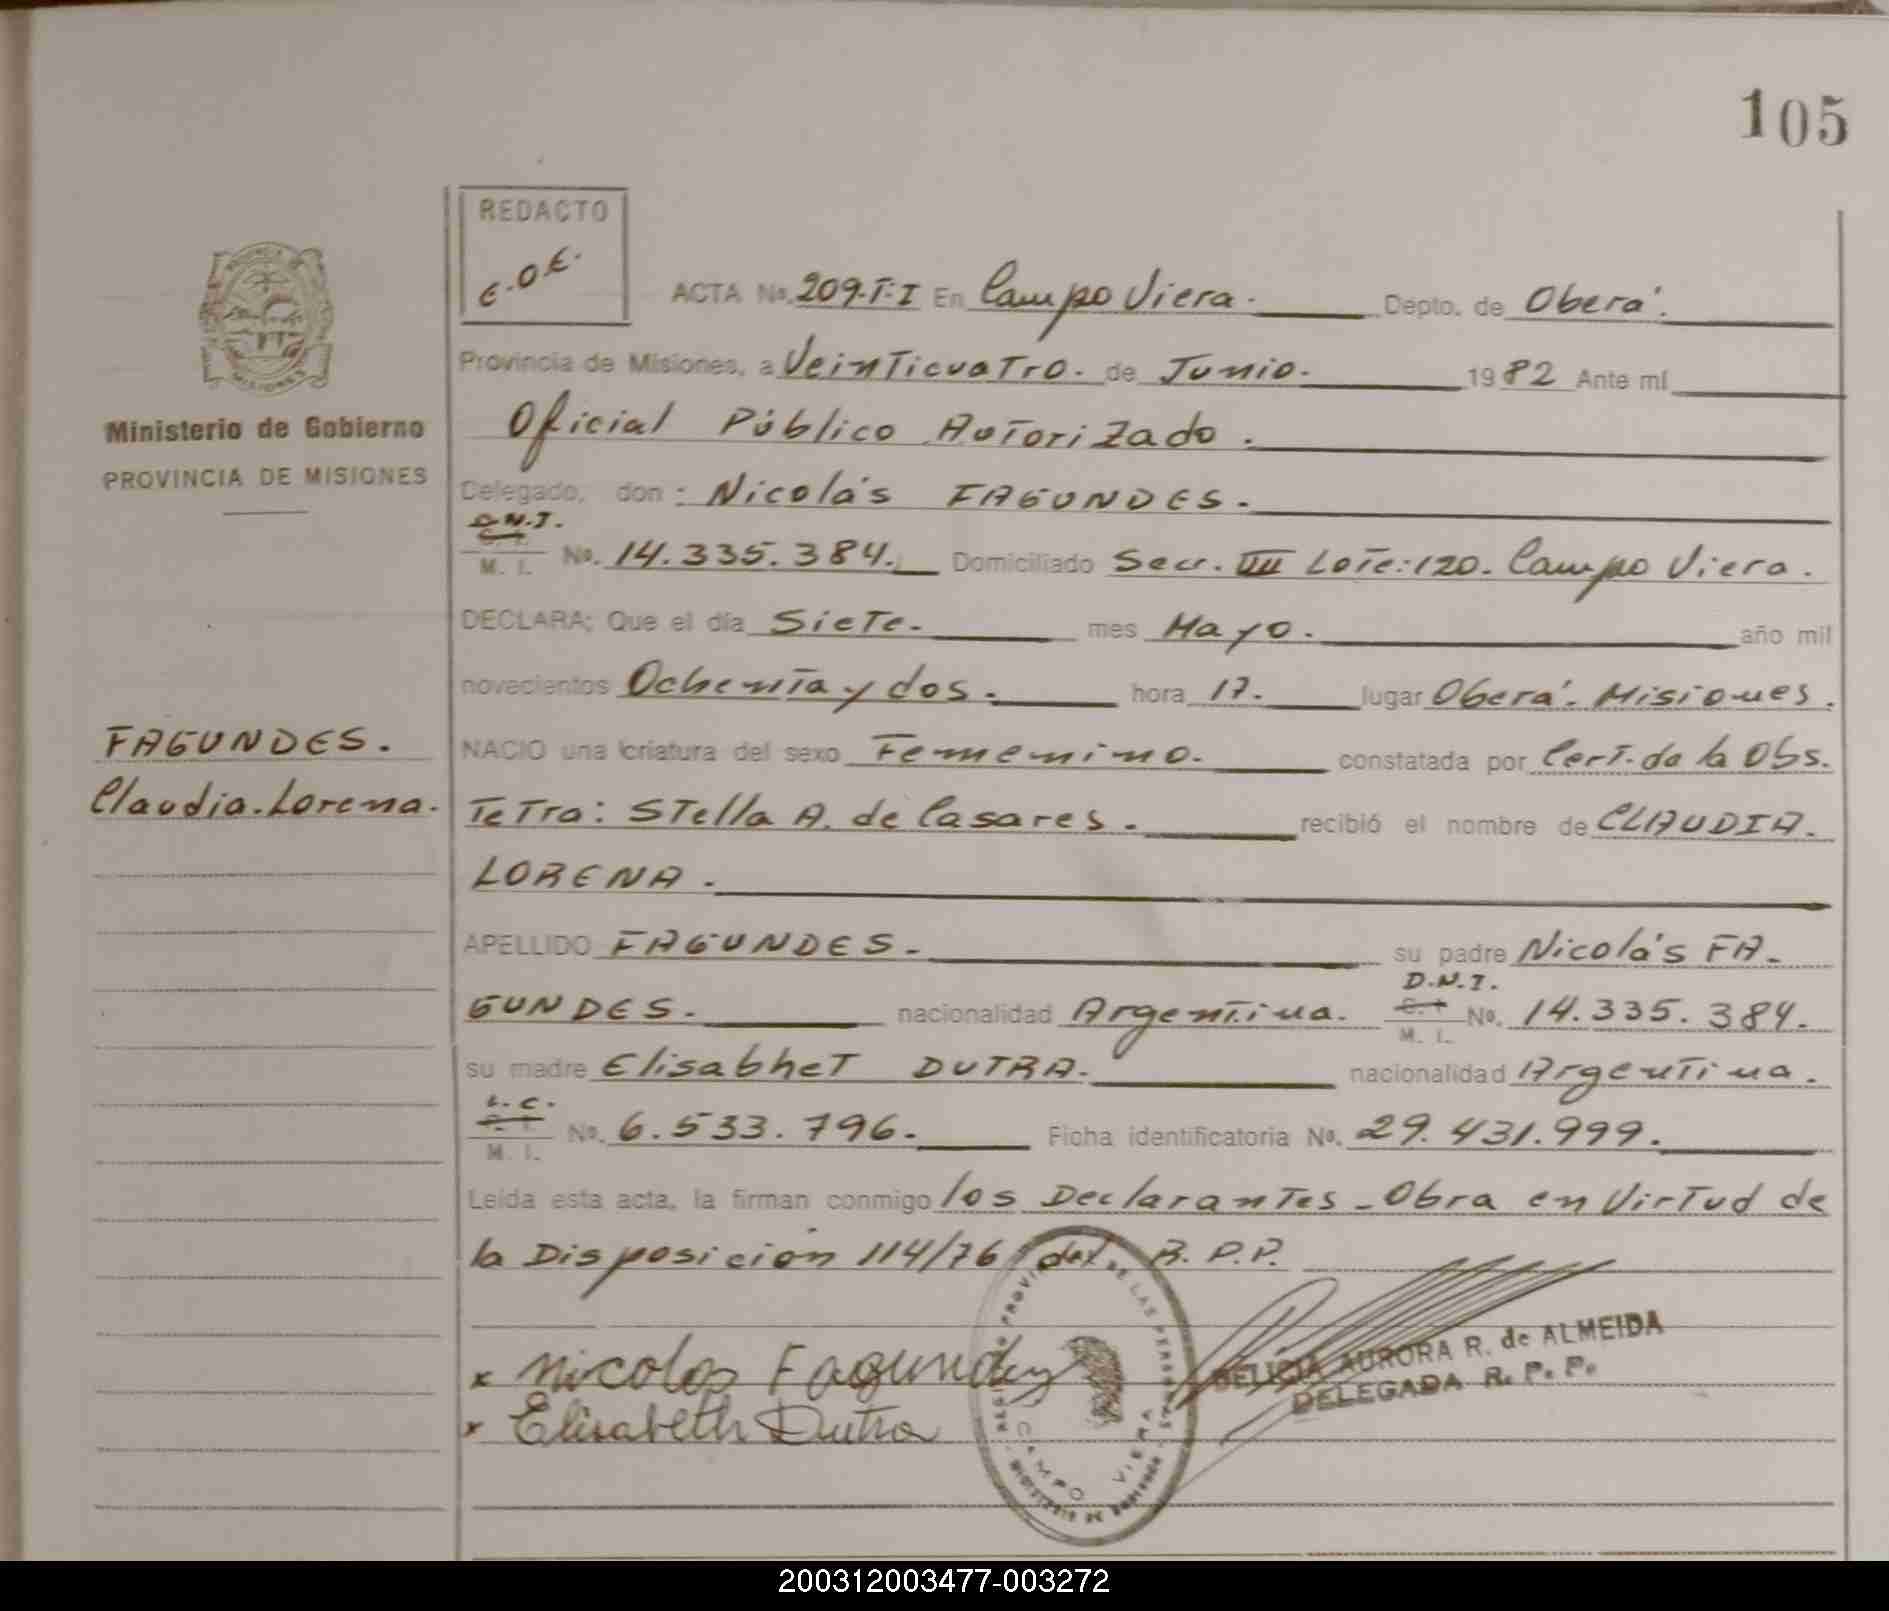 105
REDACTO
E.O.E.
ACTA No. 209.T.I En Campo Viera. Depto. de Oberá.
Provincia de Misiones, a Veinticuatro. de Junio. 1982 Ante mí
Oficial Público Autorizado.
Delegado, don: Nicolás FAGUNDES.
D.N.I.
M. I. No. 14.335.384. Domiciliado Secc. VIII Lote: 120. Campo Viera.
DECLARA; Que el día Siete. mes Mayo. año mil
novecientos Ochenta y dos. hora 17. lugar Oberá. Misiones.
NACIO una criatura del sexo Femenino. constatada por Cert. de la Obs.
Tetra: Stella A. de Casares. recibió el nombre de CLAUDIA.
LORENA.
APELLIDO FAGUNDES. su padre Nicolás FA-
D.N.I.
GUNDES. nacionalidad Argentina. C. I. M. I. No. 14.335.384.
su madre Elisabhet DUTRA. nacionalidad Argentina.
L.C.
C. I. M. I. No. 6.533.796. Ficha identificatoria No. 29.431.999.
Leída esta acta, la firman conmigo los Declarantes - Obra en Virtud de
la Disposición 114/76 del R.P.P.
x Nicolas Fagundes
x Elisabeth Dutra
DELICIA AURORA R. de ALMEIDA
DELEGADA R. P. P.
CAMPO VIERA
PROVINCIA DE MISIONES
Ministerio de Gobierno
PROVINCIA DE MISIONES
FAGUNDES.
Claudia. Lorena.
200312003477-003272